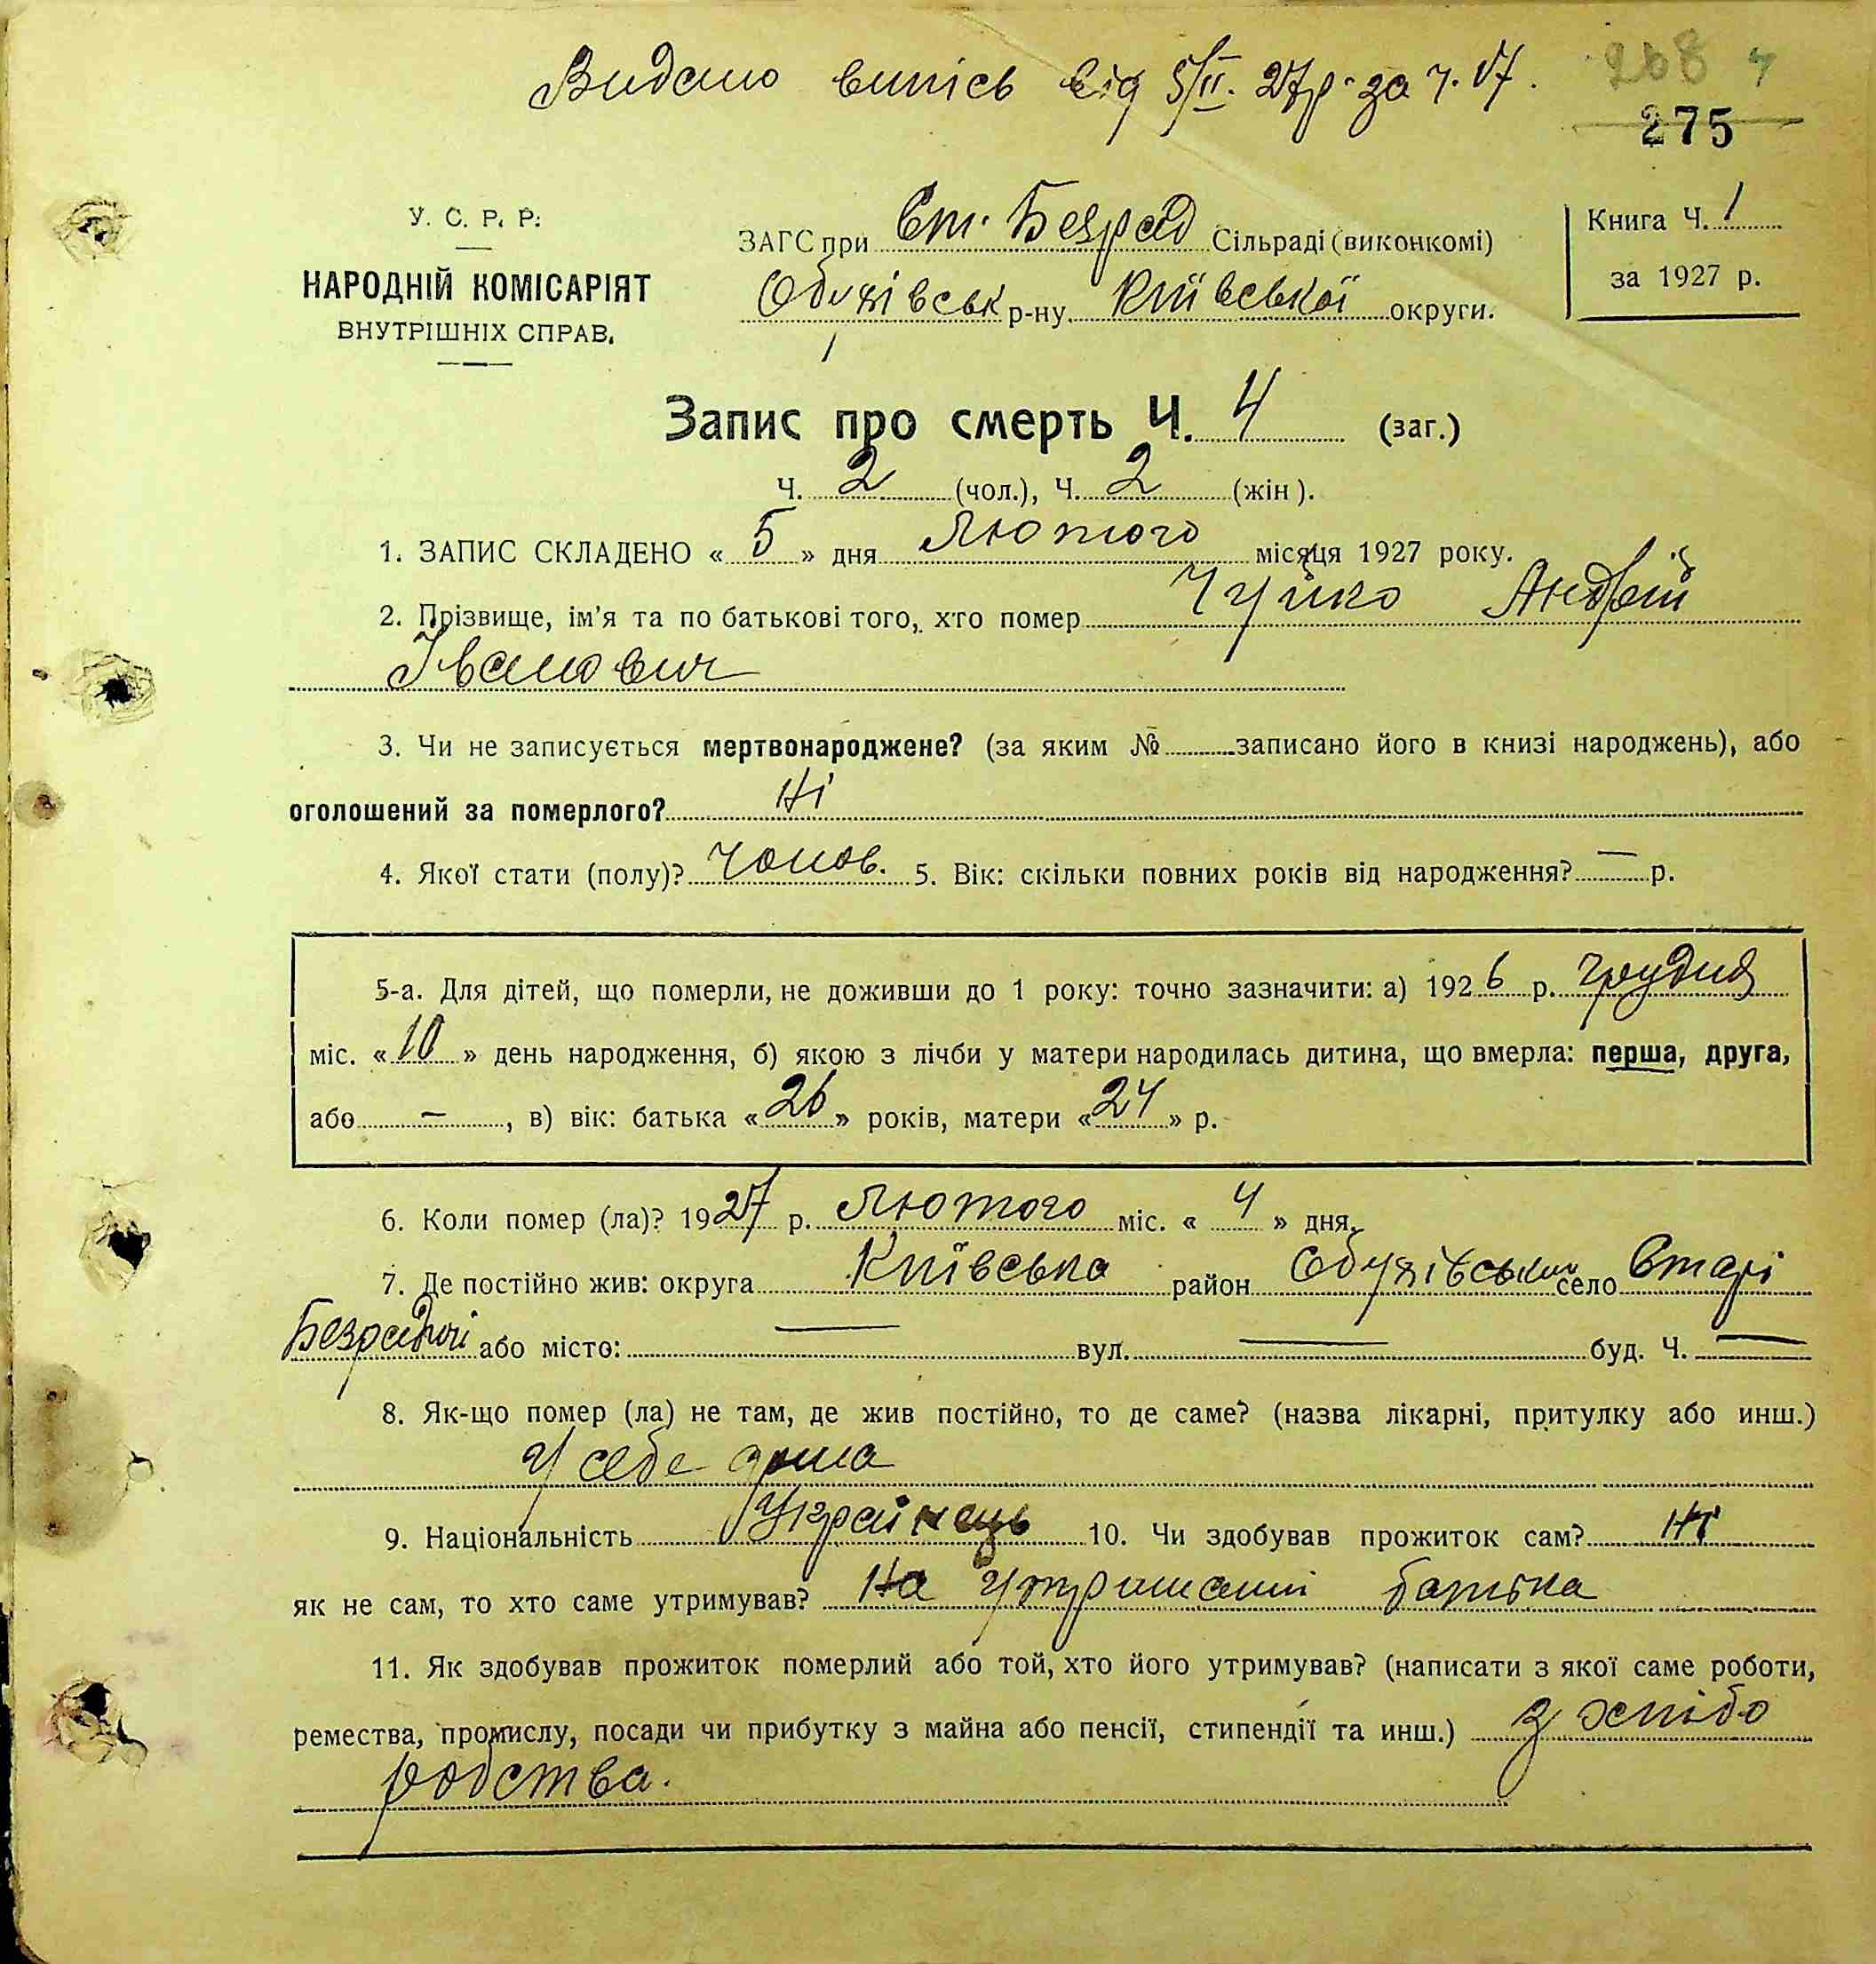 Видано випісь від 5/II. 27р. за ч. 17.
268 4
275
У. С. Р. Р.
НАРОДНІЙ КОМІСАРІЯТ
ВНУТРІШНІХ СПРАВ.
ЗАГС при Ст. Безрад Сільраді (виконкомі)
Обухівськ р-ну Київської округи.
Книга Ч. 1
за 1927 р.
Запис про смерть Ч. 4 (заг.)
Ч. 2 (чол.), Ч. 2 (жін).
1. ЗАПИС СКЛАДЕНО « 5 » дня Лютого місяця 1927 року.
2. Прізвище, ім'я та по батькові того, хто помер Чуйко Андрій
Іванович
3. Чи не записується мертвонароджене? (за яким № записано його в книзі народжень), або
оголошений за померлого? Ні
4. Якої стати (полу)? Чолов. 5. Вік: скільки повних років від народження? — р.
5-а. Для дітей, що померли, не доживши до 1 року: точно зазначити: а) 1926 р. грудня
міс. « 10 » день народження, б) якою з лічби у матери народилась дитина, що вмерла: перша, друга,
або — , в) вік: батька « 26 » років, матери « 24 » р.
6. Коли помер (ла)? 1927 р. Лютого міс. « 4 » дня.
7. Де постійно жив: округа Київська район Обухівський село Старі
Безрадичі або місто: — вул. — буд. Ч. —
8. Як-що помер (ла) не там, де жив постійно, то де саме? (назва лікарні, притулку або инш.)
У себе дома
9. Національність Українець 10. Чи здобував прожиток сам? Ні
як не сам, то хто саме утримував? На утриманні батька
11. Як здобував прожиток померлий або той, хто його утримував? (написати з якої саме роботи,
ремества, промислу, посади чи прибутку з майна або пенсії, стипендії та инш.) З хлібо
робства.